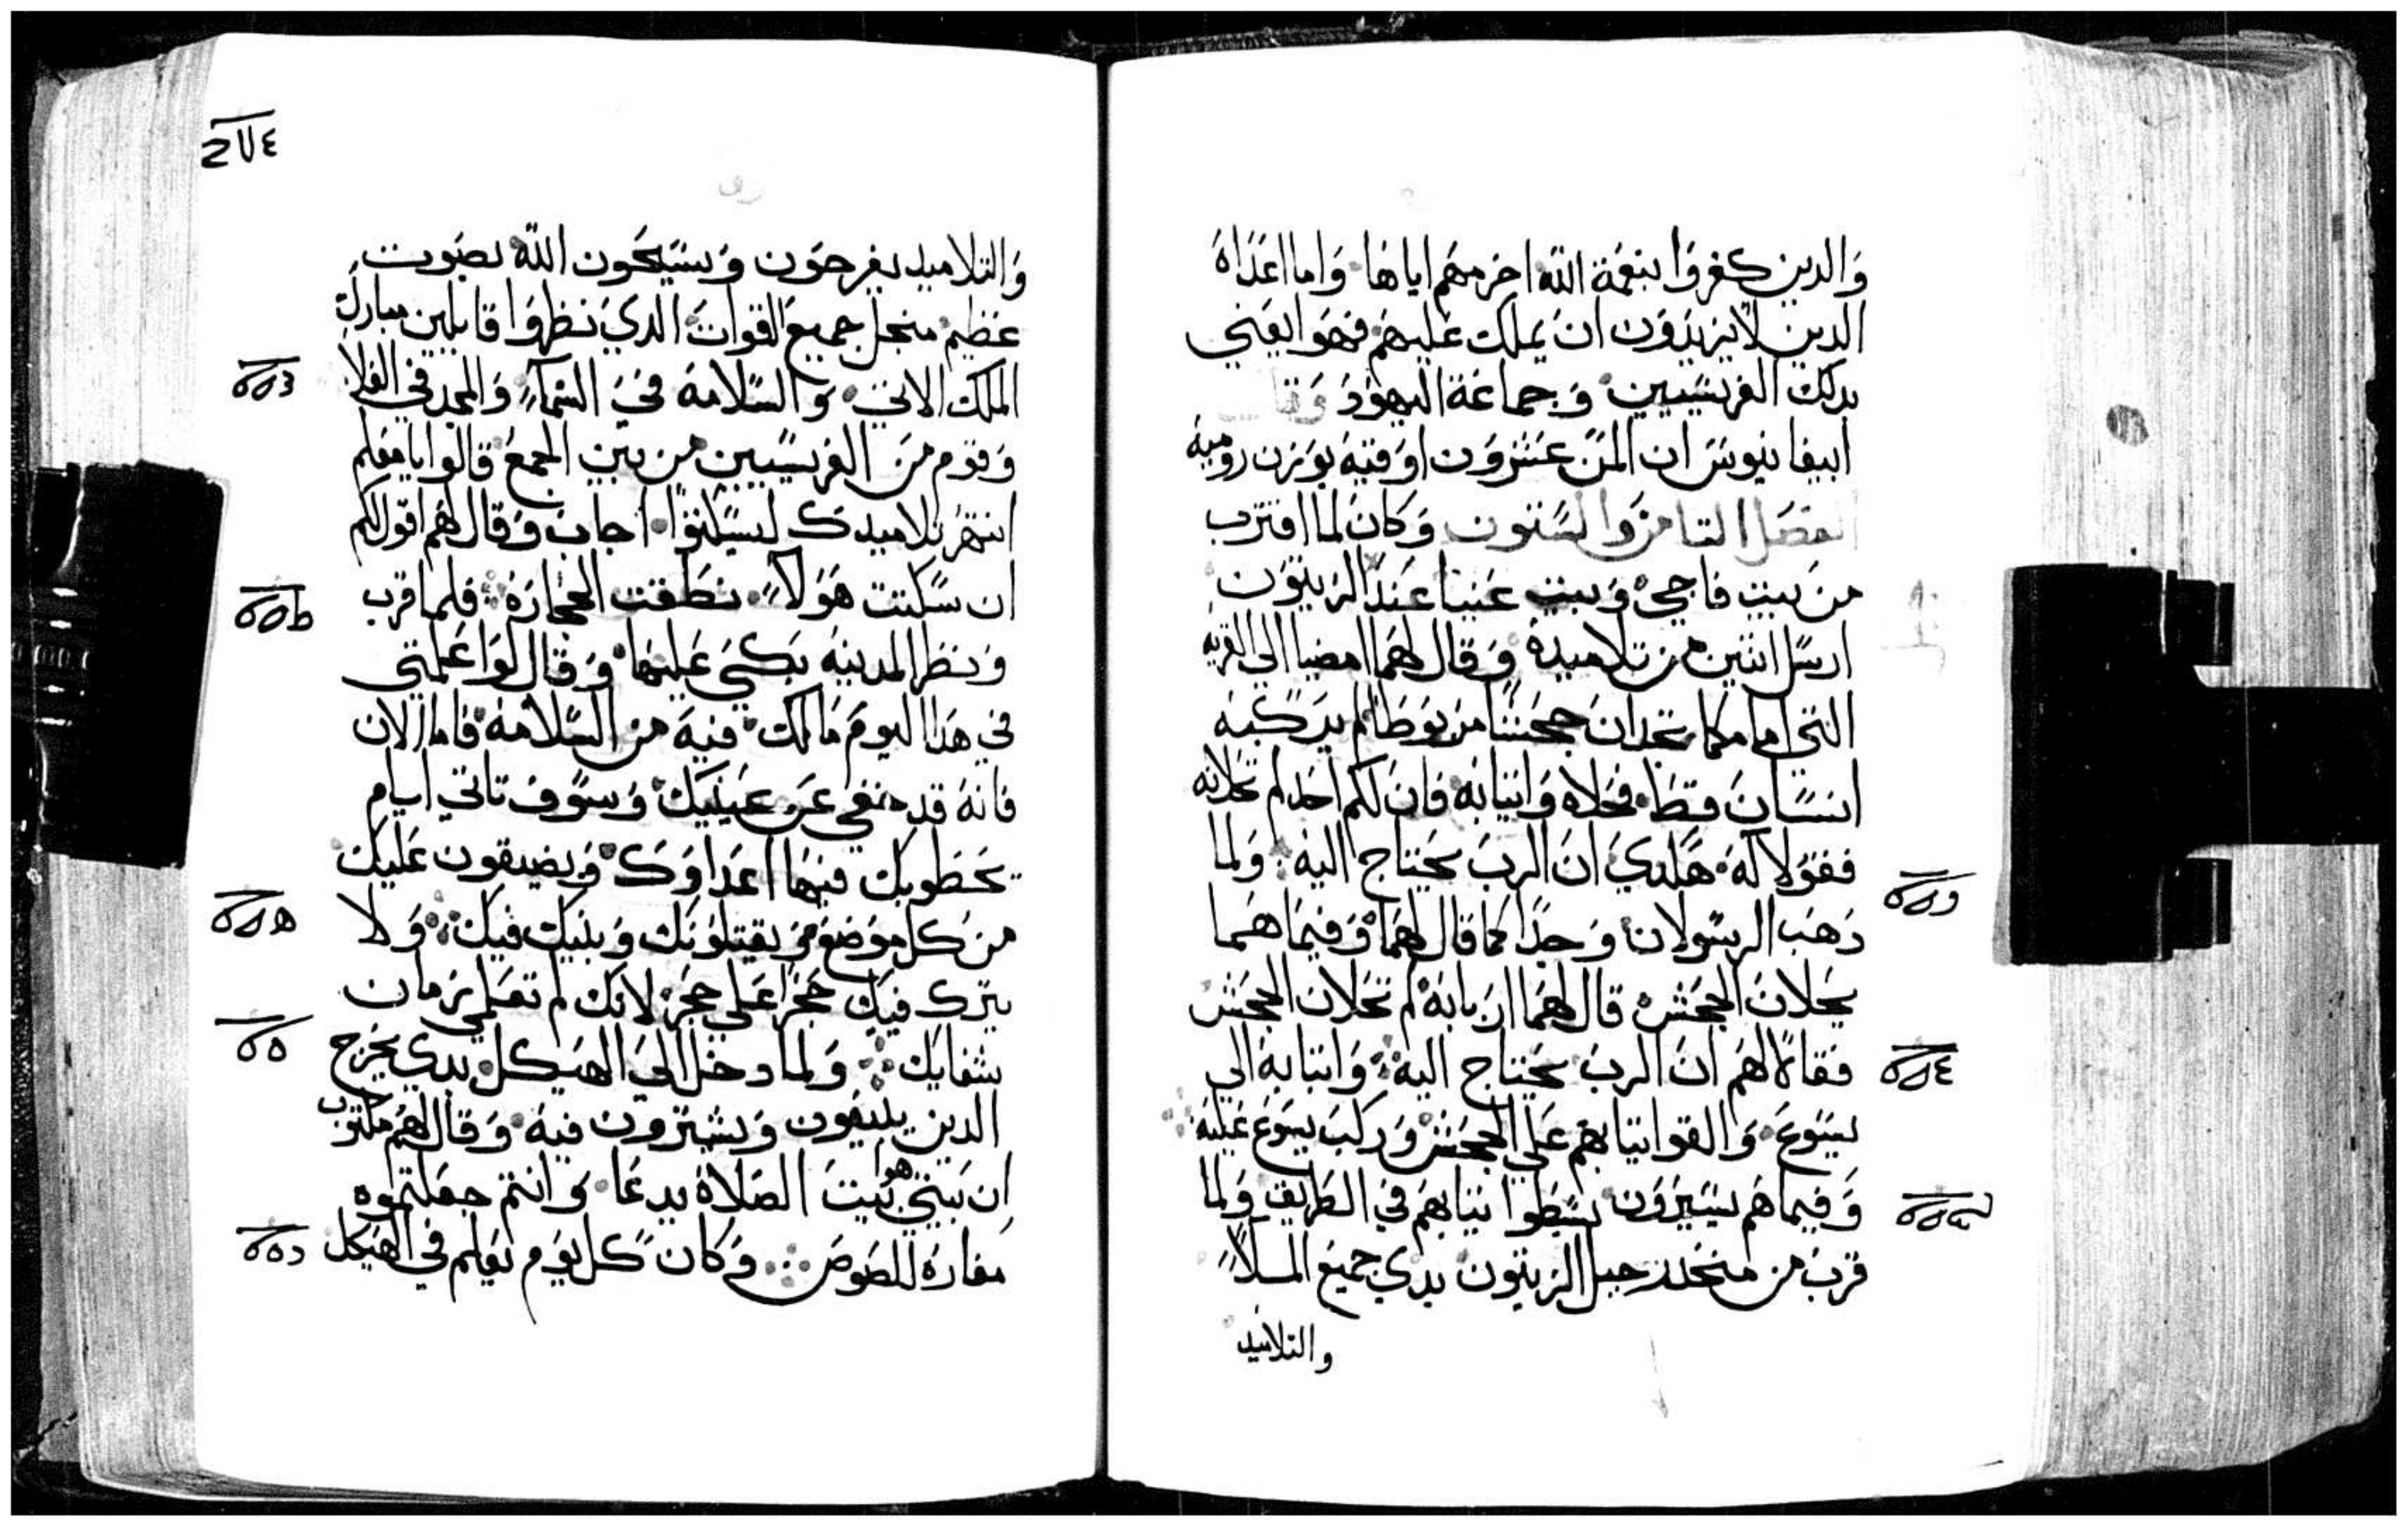 والدين كفروا بنعمة الله اخرمهم اياها واما اعداه
الدين لا يريدون ان يملك عليهم فهوا يعني
بدلك الفريسيين وجماعة اليهود وقال
ابيفانيوس ان المن عشرون اوقيه بوزن روميه
الفصل الثامن والستون وكان لما اقترب
من بيت فاجي وبيت عنيا عند الزيتون
ارسل اتنين من تلاميده وقال لهما امضيا الي القريه
التي امامكما تجدان جحشا مربوطا لم يركبه
انسان قط فحلاه واتيا به فان لكم احد لم تحلانه
فقولا له هكدي ان الرب يحتاج اليه ولما
دهب الرسولان وجدا كما قال لهما وفيما هما
يحلان الجحش قال لهما اربابه لم تحلان الجحش
فقالا لهم ان الرب يحتاج اليه واتيا به الي
يسوع والقوا تيابهم علي الجحش وركب يسوع عليه
وفيما هم يسيرون بسطوا تيابهم في الطريق ولما
قرب من منحدر جبل الزيتون بدي جميع الملأ
والتلاميد
والتلاميد يفرحون ويسبحون الله بصوت
عظيم منجل جميع القوات الدي نظروا قايلين مبارك
الملك الاتي والسلامه في السماء والمجد في العلا
وقوم من الفريسيين من بين الجمع قالوا يا معلم
انتهر تلاميدك ليسكتوا اجاب وقال لهم اقول لكم
ان سكتت هولاء نطقت الحجاره فلما قرب
ونظر المدينه بكي عليها وقال لوا علمتي
في هدا اليوم مالك فيه من السلامه فاما الان
فانه قد خفي عن عينيك وسوف تاتي ايام
يحطوبك فيها اعداوك ويضيقون عليك
من كل موضع ويقتلونك وبنيك فيك ولا
يترك فيك حجرا علي حجر لانك لم تعلمي زمان
شفايك ولما دخل الي الهيكل بدي يخرج
الدين يبيعون ويشترون فيه وقال لهم مكتوب
ان بيتي هوا بيت الصلاه يدعا وانتم جعلتموه
مغاره للصوص وكان كل يوم يعلم في الهيكل